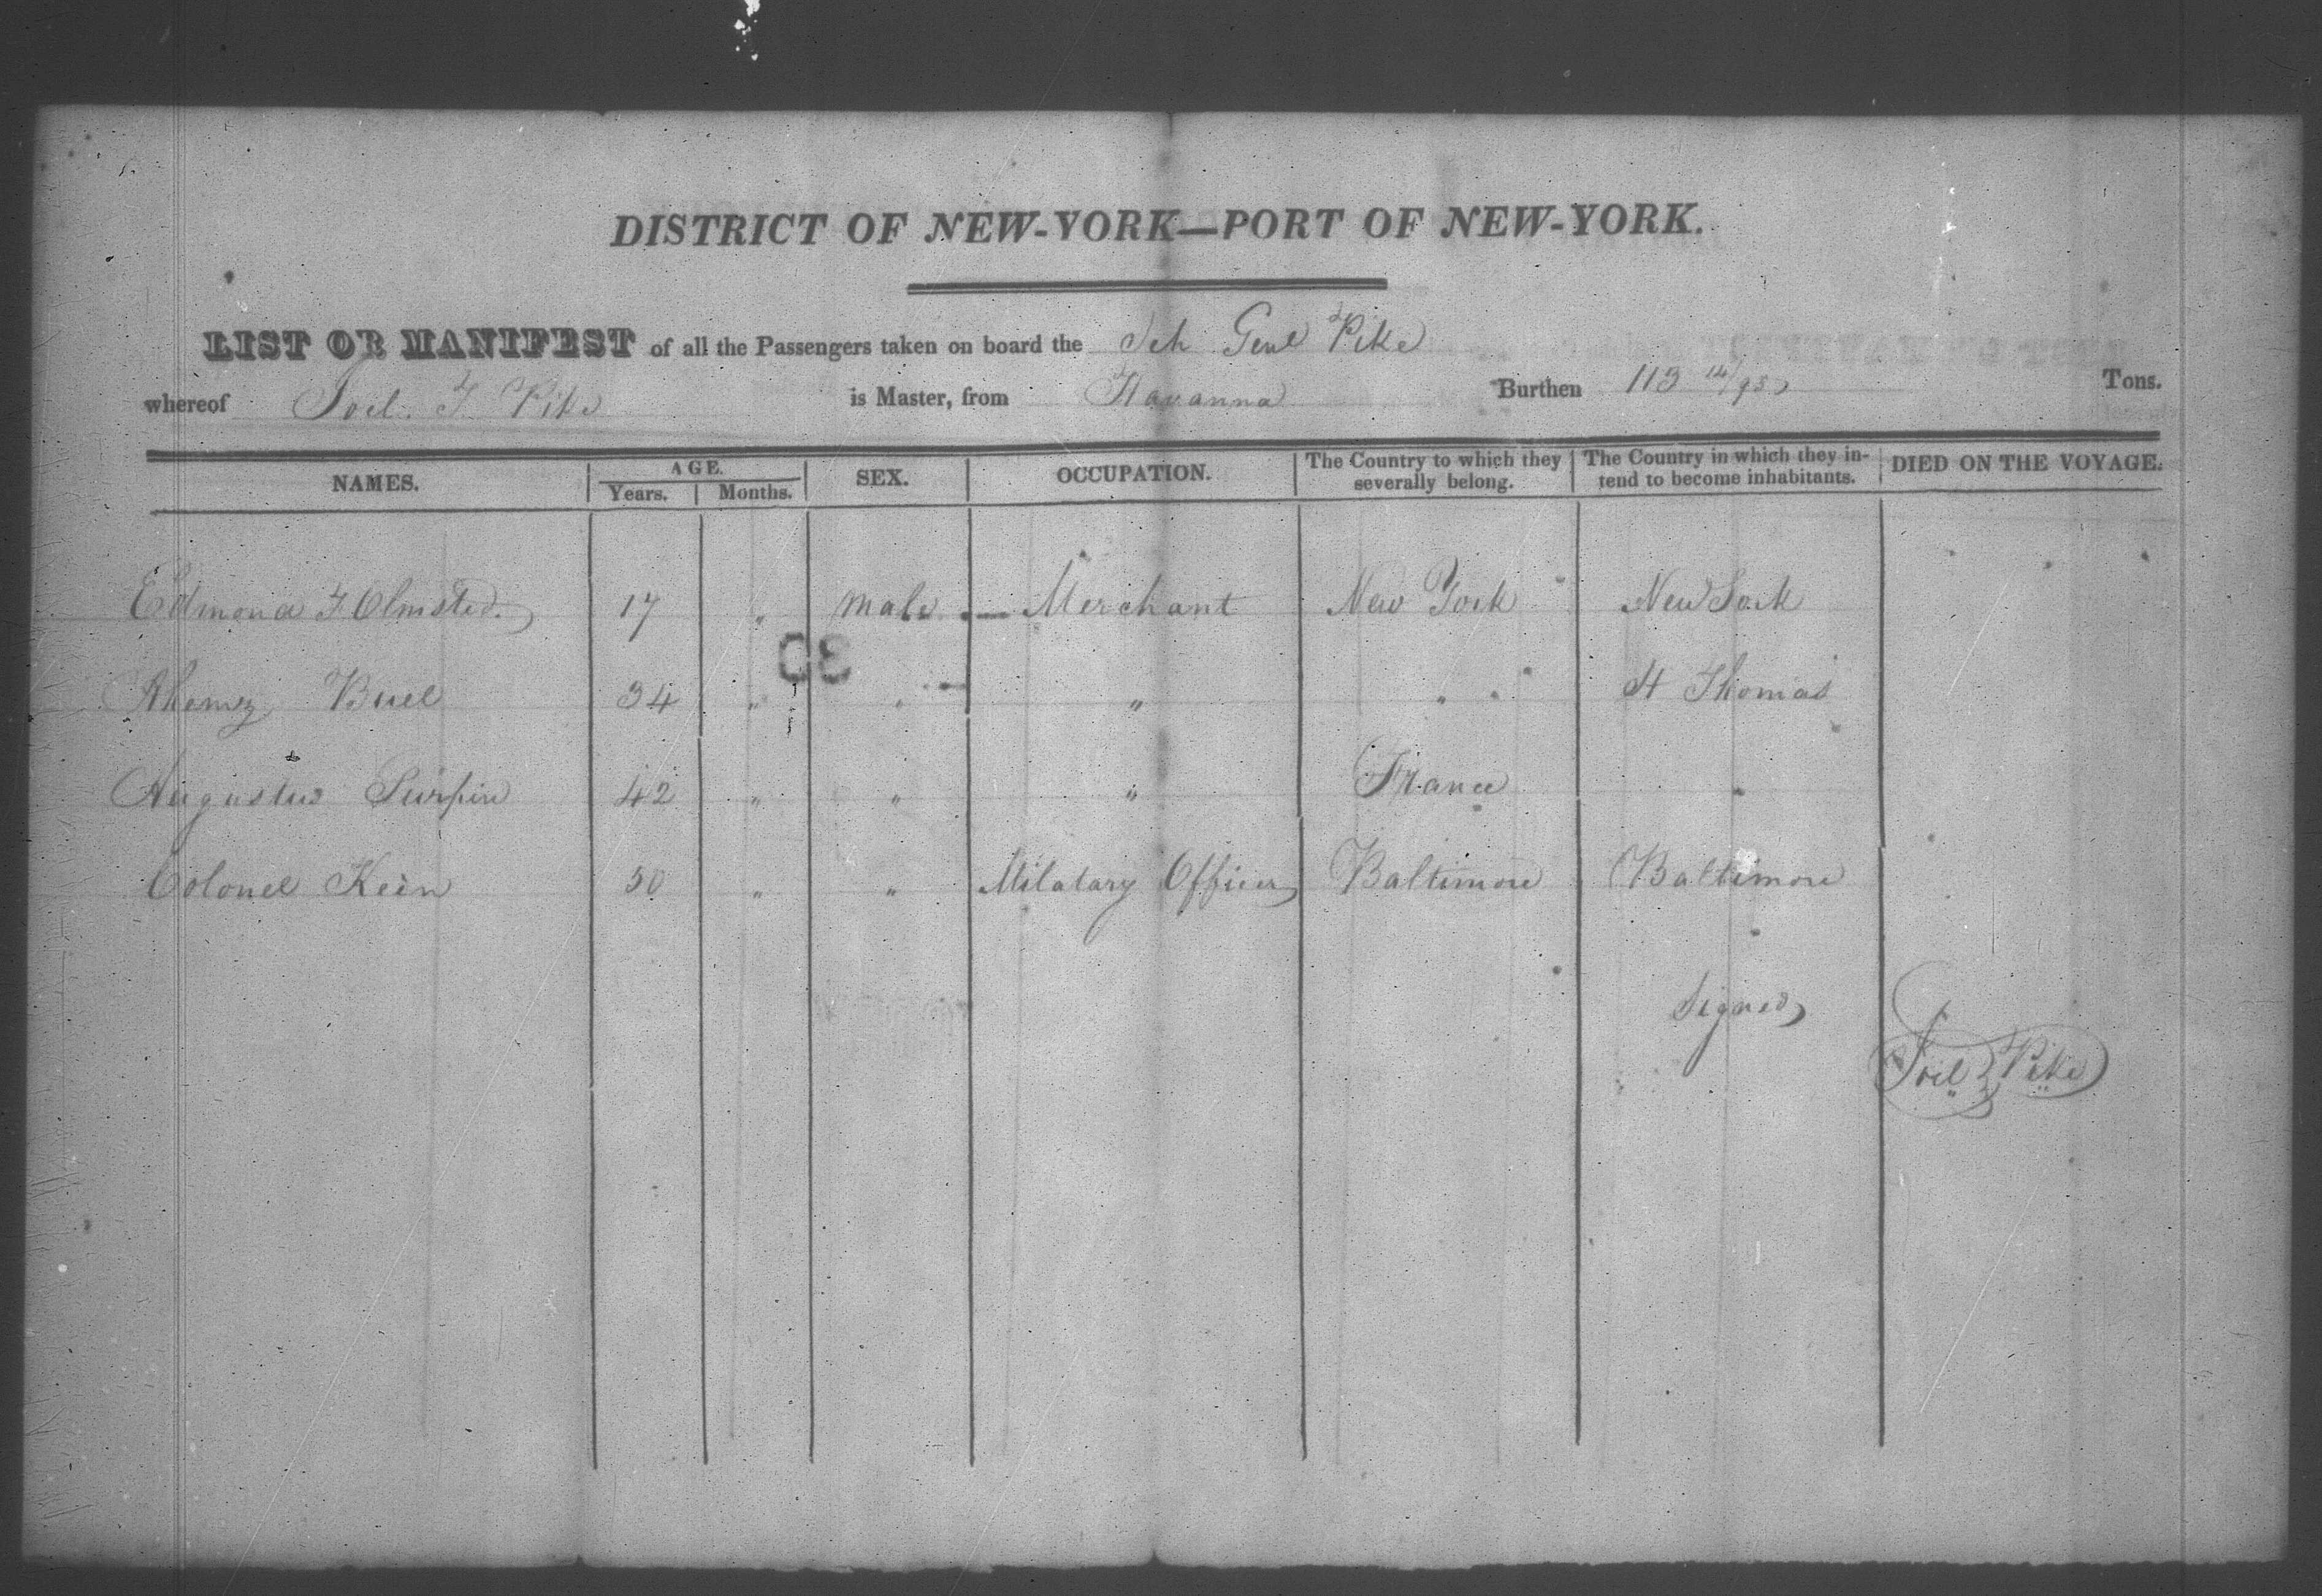 DISTRICT OF NEW-YORK—PORT OF NEW-YORK.
LIST OR MANIFEST of all the Passengers taken on board the Sch Genl Pike
whereof Joel. F Pike is Master, from Havanna Burthen 113 14/95 Tons.
NAMES. AGE. Years. Months. SEX. OCCUPATION. The Country to which they severally belong. The Country in which they intend to become inhabitants. DIED ON THE VOYAGE.
Edmond F Olmsted. 17 " male — Merchant New York New York
Buel 34 " " " " " St Thomas
Augustus 42 " " " France "
Colonel Keen 50 " " Militarry Officer Baltimore Baltimore
Signed
Joel F Pike
30